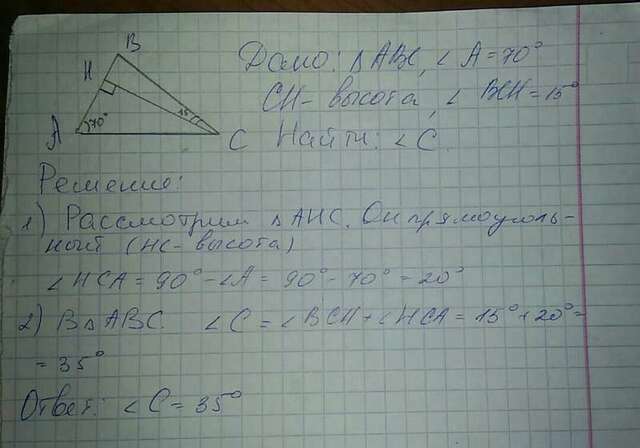 B
H
A 70° 15 C
Дано: △ABC, ∠A = 70°
CH - высота, ∠ BCH = 15°
Найти: ∠C.
Решение:
1) Рассмотрим △AHC. Он прямоуголь-
ный (HC - высота)
∠HCA = 90° - ∠A = 90° - 70° = 20°
2) В △ABC. ∠C = ∠BCH + ∠HCA = 15° + 20° =
= 35°
Ответ: ∠C = 35°